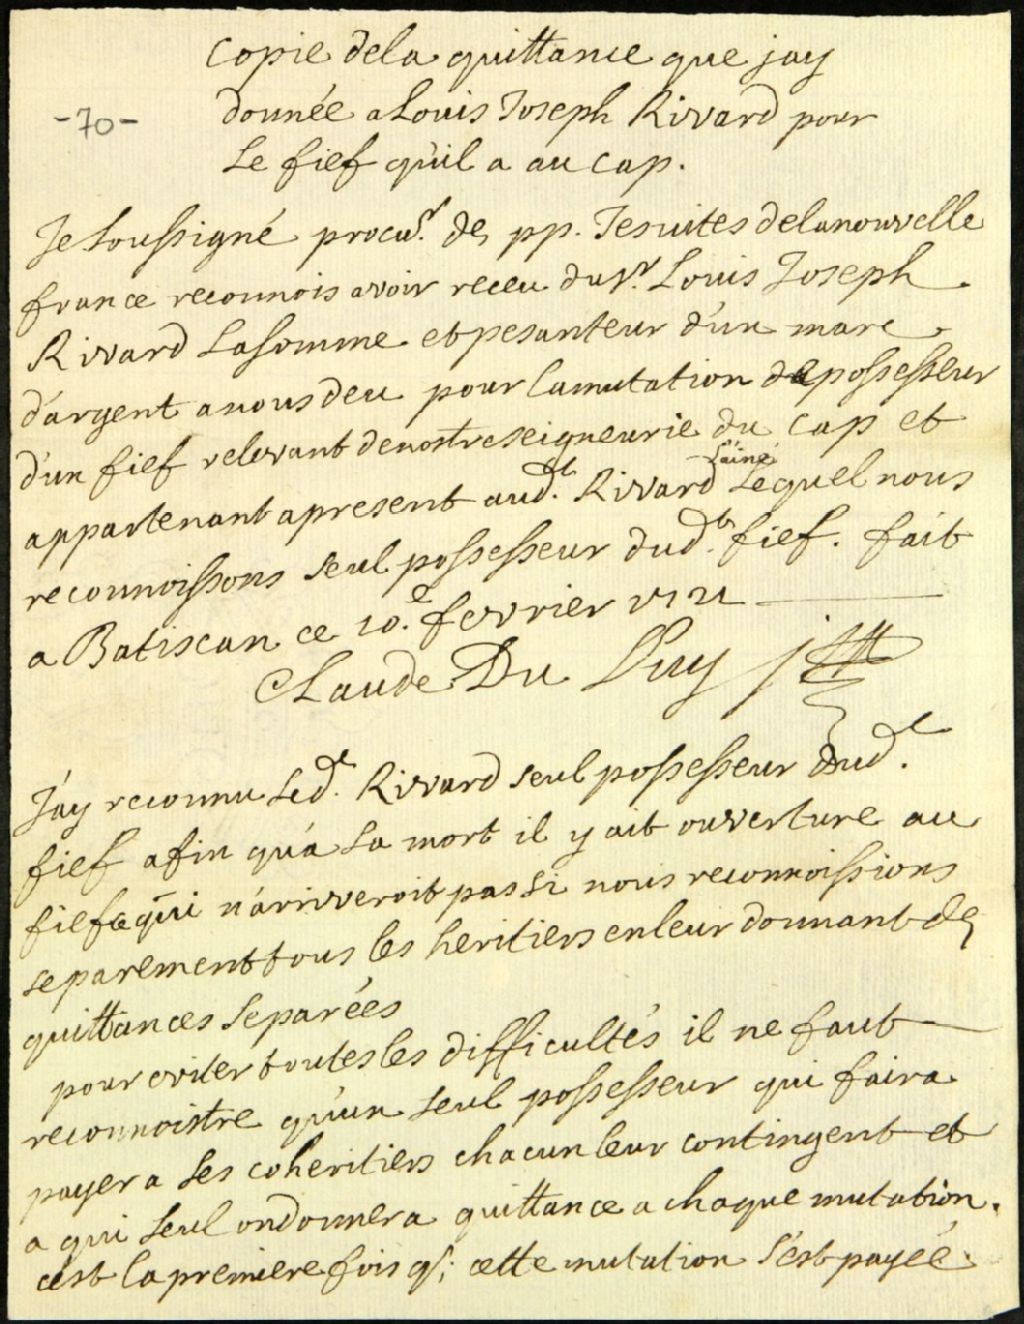 Copie dela quittance que jay
-70-
donnée a Louis Joseph Rivard pour
Le fief qu'il a au cap.
Je Soussigné procur. des pp. Jesuites delanouvelle
france reconnois avoir receu du Sr. Louis Joseph
Rivard La Somme et pesanteur d'un marc
d'argent a nous deu pour lamutation de possesseur
d'un fief relevant denostre seigneurie du Cap et
appartenant apresent aud.t Rivard L'ainé Lequel nous
reconnoissons seul possesseur dud.t fief. fait
a Batiscan ce 10.e fevrier 1721
Claude Du Puy j
J'ay reconnu Led.t Rivard seul possesseur dud.t
fief afin qu'a Sa mort il y ait ouverture au
fief ce qui n'arriveroit pas si nous reconnoissions
separement tous les heritiers enleur donnant des
quittances Separées
pour eviter toutes les difficultés il ne faut
reconnoistre qu'un seul possesseur qui faira
payer a Ses coheritiers chacun leur contingent et
a qui seul on donnera quittance a chaque mutation.
cest la premiere fois q; cette mutation S'est payée